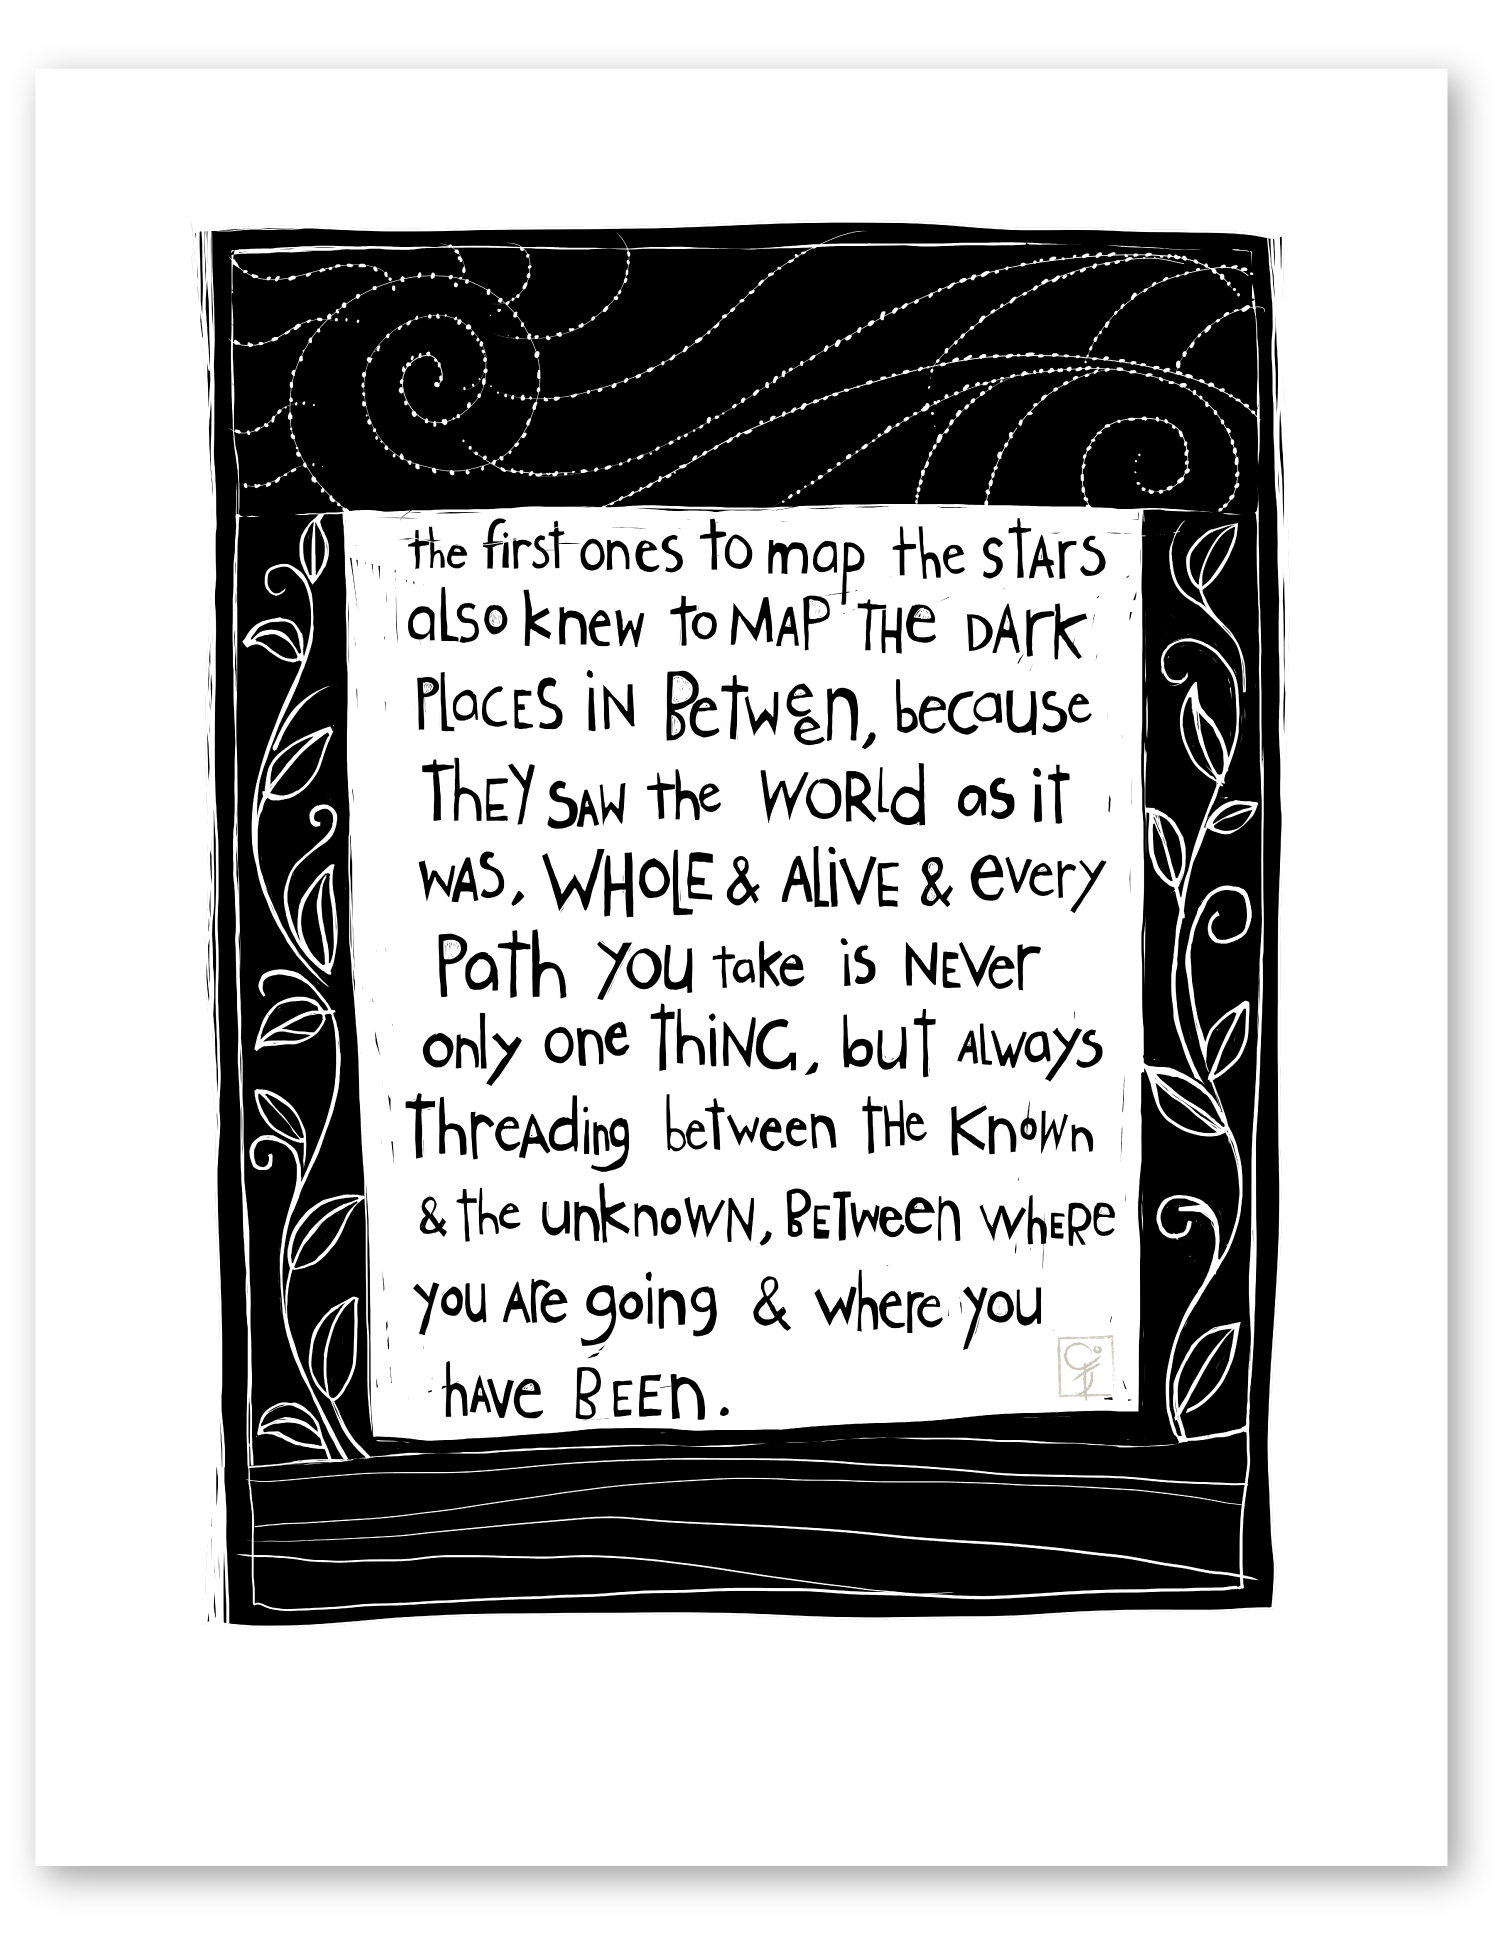 the first ones to map the sTArs
also knew to MAP THe DArk
PlaCES iN BeTween, because
ThEY SAW the WORld as it
WAS, WHOLE & ALiVE & every
Path YOU take is NEVer
only one ThiNG, but ALways
ThreAding beTween THe KnoWn
& the unknoWN, BETween WhERe
you Are going & where you
hAve BEEn.